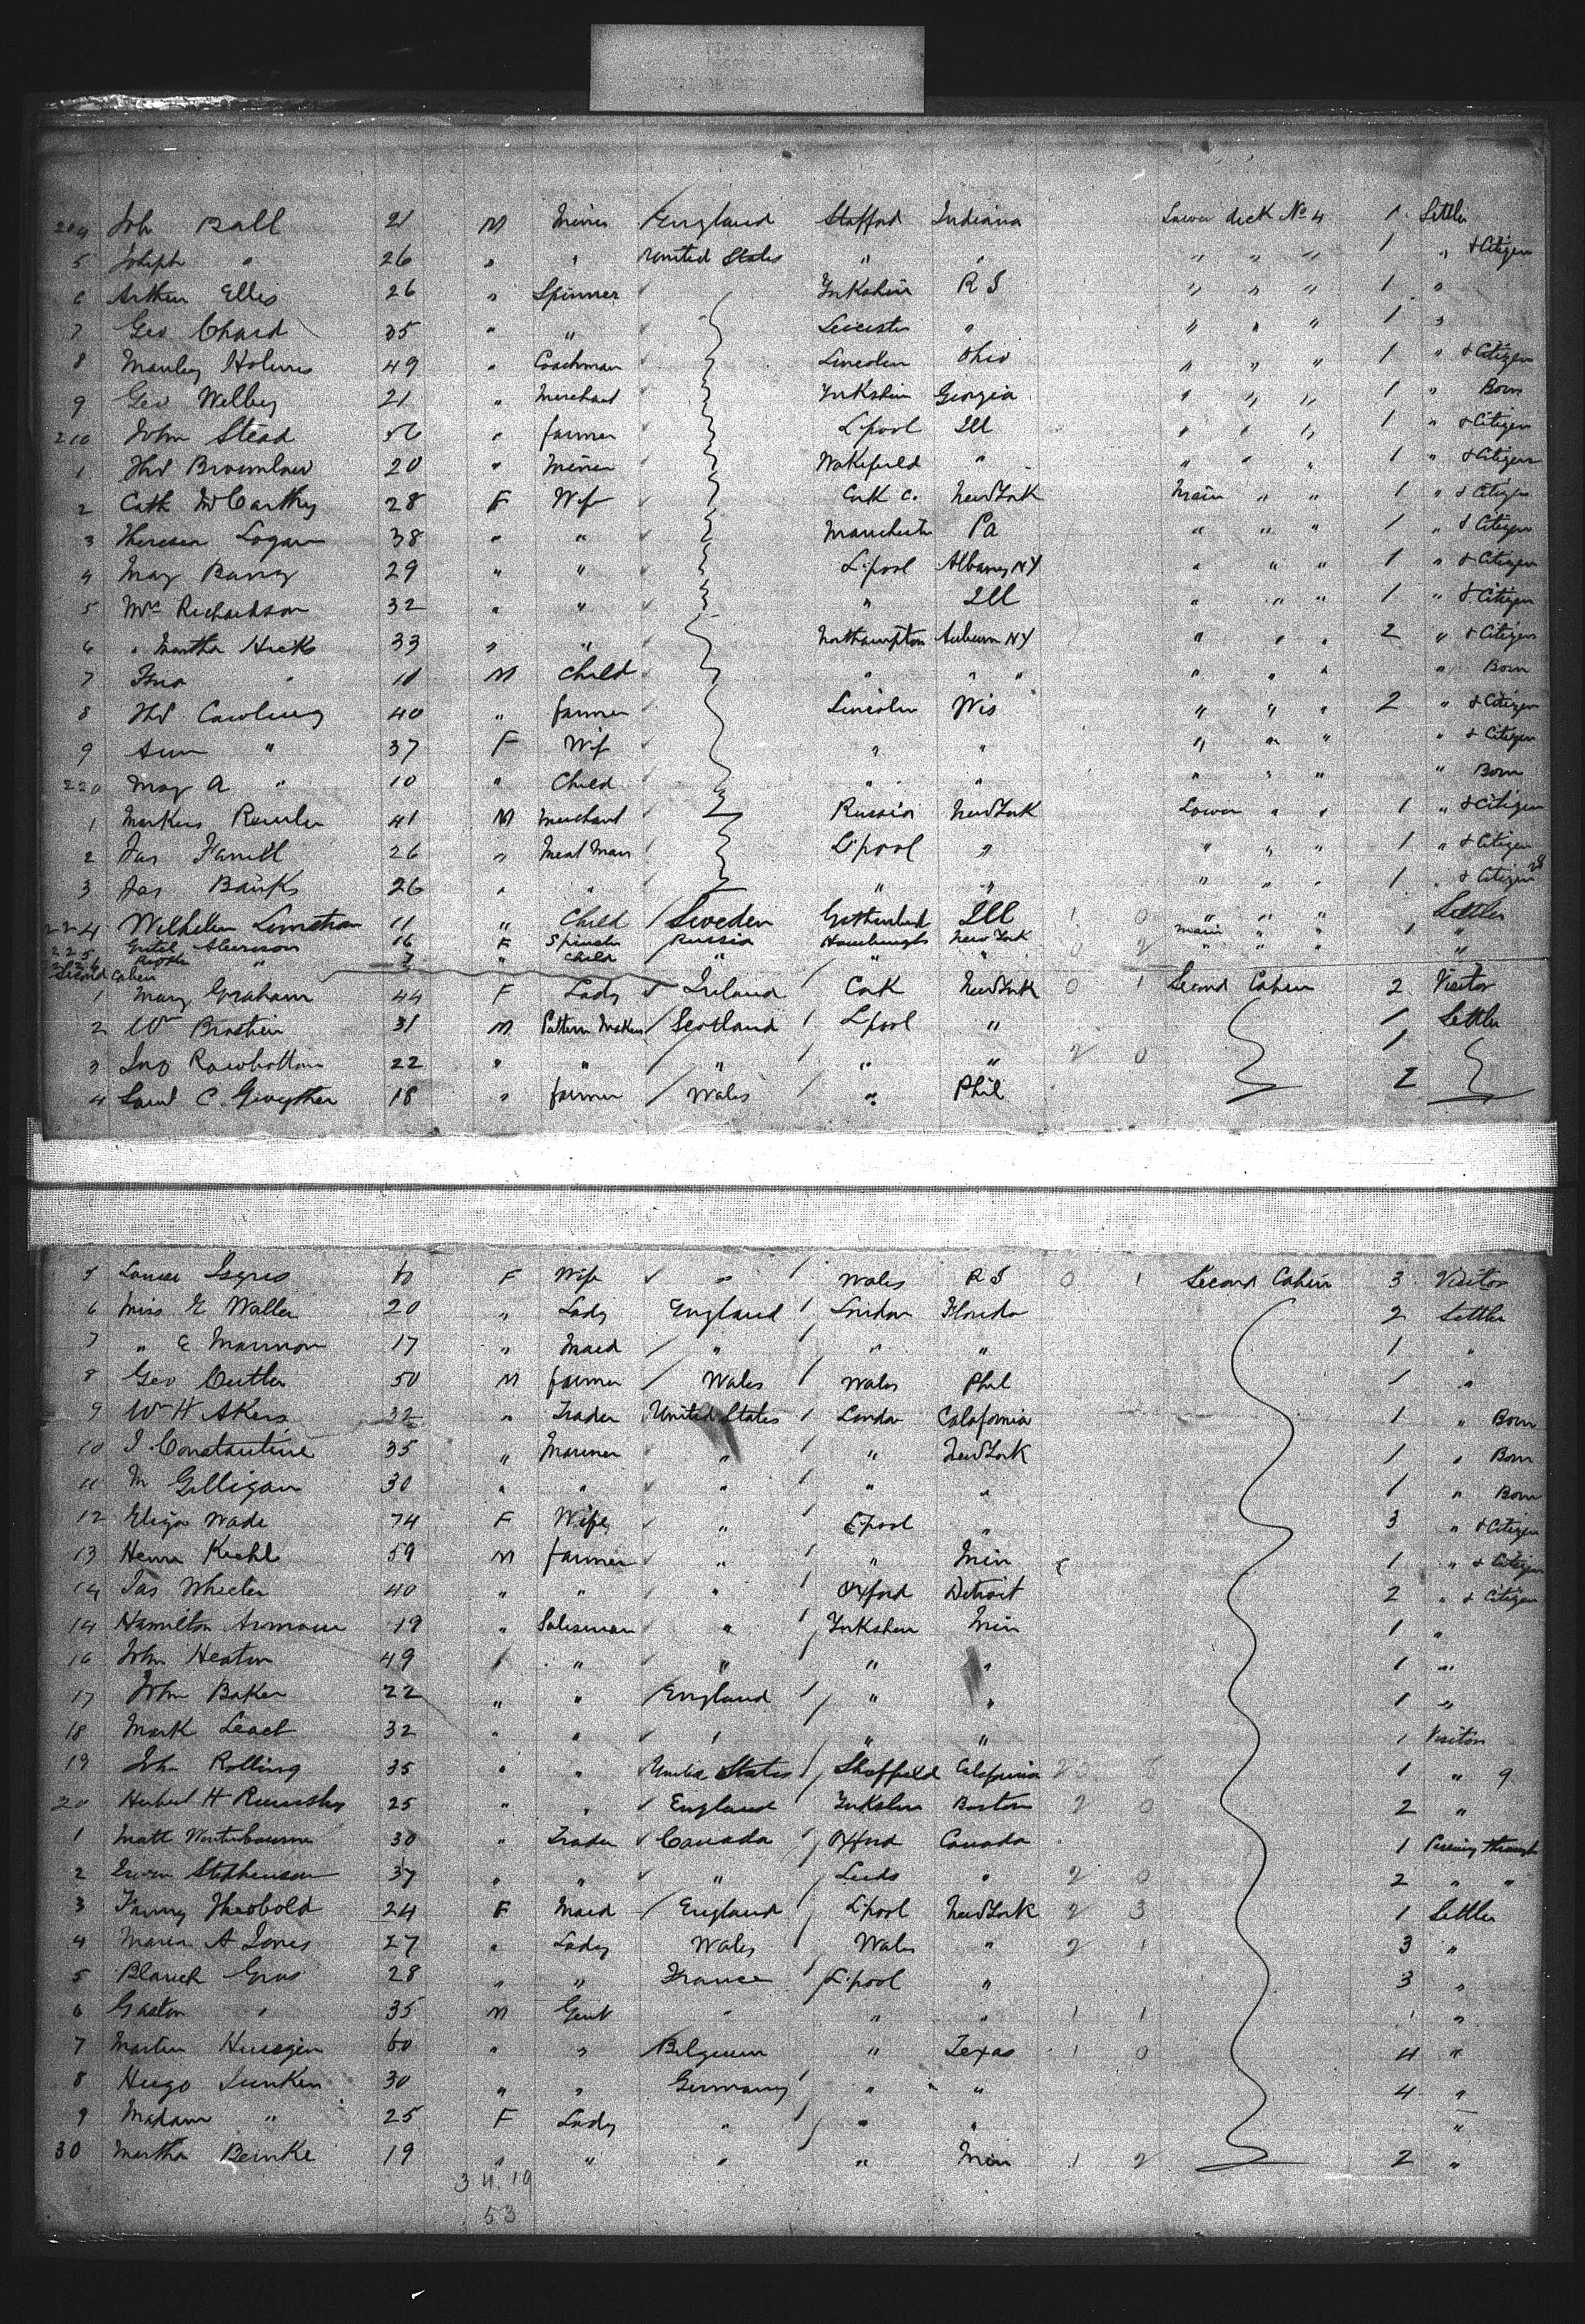 204 Joh Ball 21 M Miner England Stafford Indiana Lower deck No 4 1 Settler
5 Joseph " 26 " " United States " " " " " 1 " & Citizen
6 Arthur Ellis 26 " Spinner Yorkshire R I " " " 1 "
7 Geo Chard 35 " " Leicester " " " " 1 "
8 Manley Holmes 49 " Coachman Lincoln Ohio " " " 1 " & Citizen
9 Geo Welbey 21 " Merchant Yorkshire Georgia " " " 1 " Born
210 John Stead 56 " farmer L'pool Ill " " " 1 " & Citizen
1 Thos Bromlow 20 " Miner Wakefield " " " " 1 " & Citizen
2 Cath McCarthy 28 F Wife Cork C. New York Main " " 1 " & Citizen
3 Theresa Logan 38 " " Manchester Pa " " " 1 " & Citizen
4 May Barry 29 " " L'pool Albany NY " " " 1 " & Citizen
5 Mrs Richardson 32 " " " Ill " " " 1 " & Citizen
6 " Martha Hicks 33 " " Northampton Auburn NY " " " 2 " & Citizen
7 " 11 M Child " " " " " " " Born
8 Thos Cawling 40 " farmer Lincoln Wis " " " 2 " & Citizen
9 Ann " 37 F Wife " " " " " " & Citizen
220 May A " 10 " Child " " " " " " Born
1 Markus 41 M Merchant Russia New York Lower " " 1 " & Citizen
2 Jas Farrell 26 " Meat Man L'pool " " " " 1 " & Citizen
3 Jas Banks 26 " " " " " " " 1 " & Citizen
224 Wilhelm 11 " Child Sweden Ill 1 0 " " " Settler
225 16 F Spinster Russia New York 0 2 Main " " 1 "
" " Child " " " " " " "
Second Cabin
1 Mary Graham 44 F Lady Ireland Cork New York 0 1 Second Cabin 2 Visitor
2 Wm 31 M Pattern Maker Scotland L'pool " 1 Settler
3 Jno Rowbottom 22 " " " " " 2 0 1
4 Saml C. Gwyther 18 " farmer Wales " Phil 2
5 Louisa F Wife " Wales R I 0 1 Second Cabin 3 Visitor
6 Miss E Waller 20 " Lady England London Florida 2 Settler
7 " E Mannon 17 " Maid " " " 1 "
8 Geo Butler 50 M farmer Wales Wales Phil 1 "
9 Wm H Akers 32 " Trader United States London Calafornia 1 " Born
10 J. Constantine 35 " Mariner " " New York 1 " Born
11 M Gilligan 30 " " " " " 1 " Born
12 Eliza Wade 74 F Wife " L'pool " 3 " & Citizen
13 59 M farmer " " Min 1 " & Citizen
14 Jas Wheeler 40 " " " Oxford Detroit 2 " & Citizen
14 Hamilton Armour 19 " Salesman " Yorkshire Min 1 "
16 John Heaton 49 " " " " " 1 "
17 John Baker 22 " " England " " 1 "
18 Mark Leach 32 " " " " " 1 Visitor
19 John Rolling 35 " " United States Sheffield California 1 " 9
20 Herbert H 25 " " England Yorkshire Boston 2 0 2 "
1 Matt Winterbourne 30 " Trader Canada Oxford Canada 1 Passing through
2 Stephenson 37 " " " Leeds " 2 0 2 " "
3 Fanny Theobold 24 F Maid England L'pool New York 2 3 1 Settler
4 Maria A Jones 27 " Lady Wales Wales " 2 1 3 "
5 Blanch Gros 28 " " France L'pool " 3 "
6 Gaston " 35 M Gent " " " 1 1 "
7 Martin 60 " " Belgium " Texas 1 0 4 "
8 Hugo Junken 30 " " Germany " " 4 "
9 Madam " 25 F Lady " " " "
30 Martha Beinke 19 " " " " Min 1 2 2 "
34. 19
53